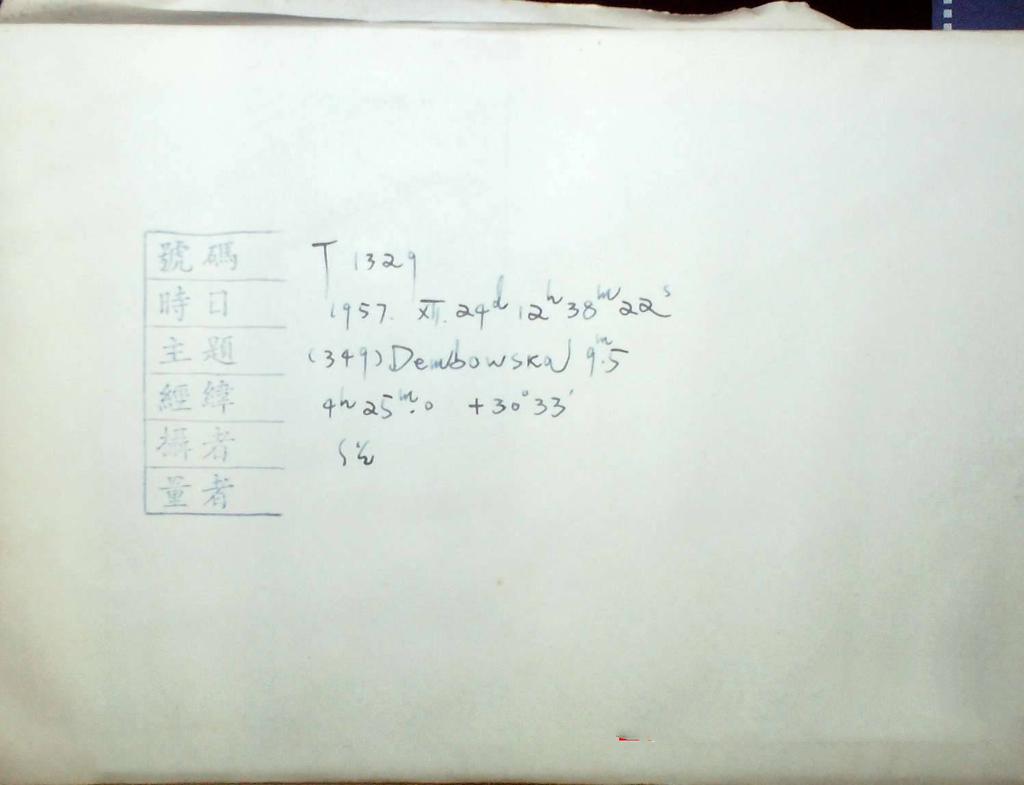 號碼 T 1329
時日 1957. XII. 24ᵈ 12ʰ 38ᵐ 22ˢ
主題 (349) Dembowska 9ᵐ.5
經緯 4ʰ 25ᵐ.0 +30°33′
攝者
量者